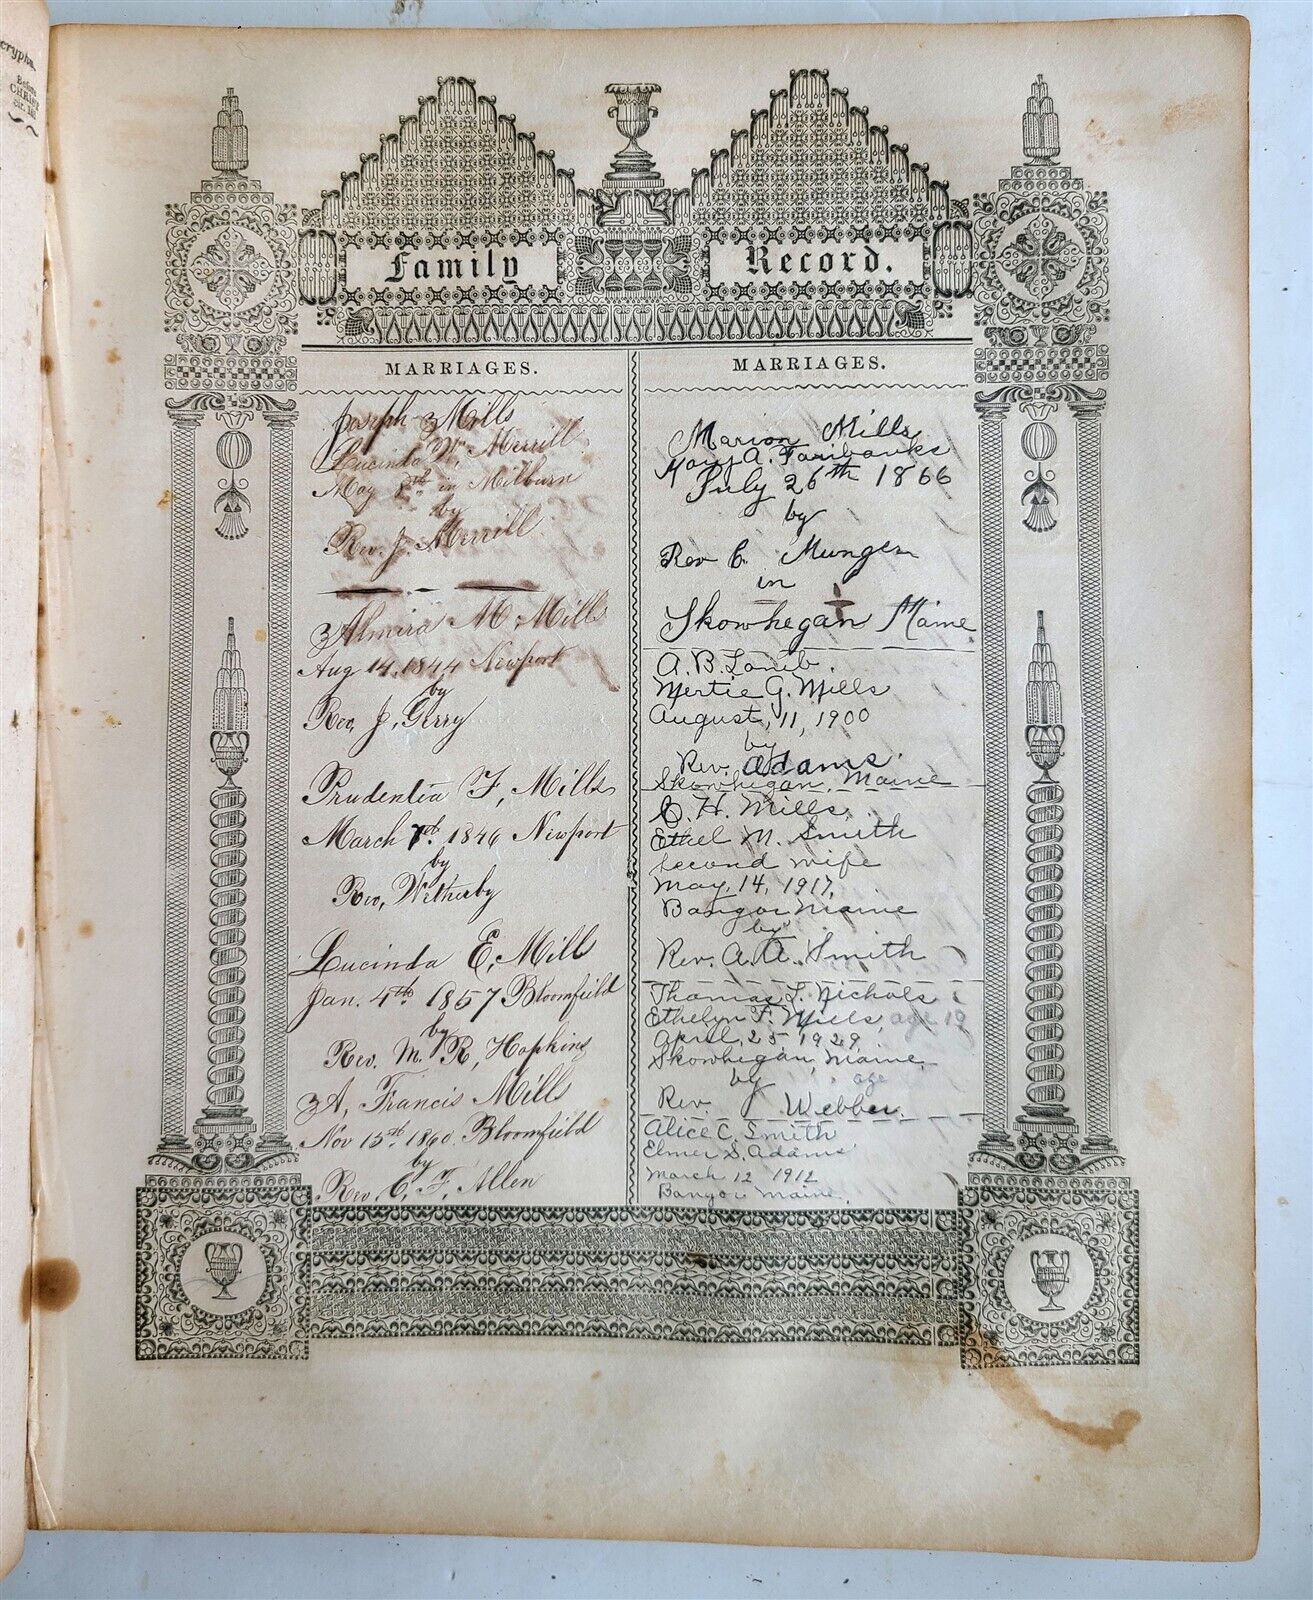 Family Record.
MARRIAGES.
Joseph Mills
Lucinda W. Merrill
May 8th in Milburn
by
Rev. J. Merrill
Almira M Mills
Aug 14, 1844 Newport
by
Rev, J, Gerry
Prudentia F, Mills
March 1st. 1846 Newport
by
Rev, Witherby
Lucinda E, Mills
Jan. 4th 1857 Bloomfield
by
Rev. M. R, Hopkins
A, Francis Mills
Nov 15th 1860. Bloomfield
by
Rev, C, F, Allen
MARRIAGES.
Marion Mills
Mary A. Fairbanks
July 26th 1866
by
Rev C. Munger
in
Skowhegan Maine
A. B. Lamb.
Mertie G. Mills
August, 11, 1900
by
Rev. Adams.
Skowhegan, Maine
C. H. Mills.
Ethel M. Smith
second wife
May, 14, 1917.
Bangor Maine
by
Rev. A. A. Smith
Thomas L. Nichols
Ethelyn F. Mills, age 19
April, 25, 1929,
Skowhegan, Maine,
by age
Rev. Webber.
Alice C. Smith
Elmer S. Adams
March 12 1912
Bangor Maine.